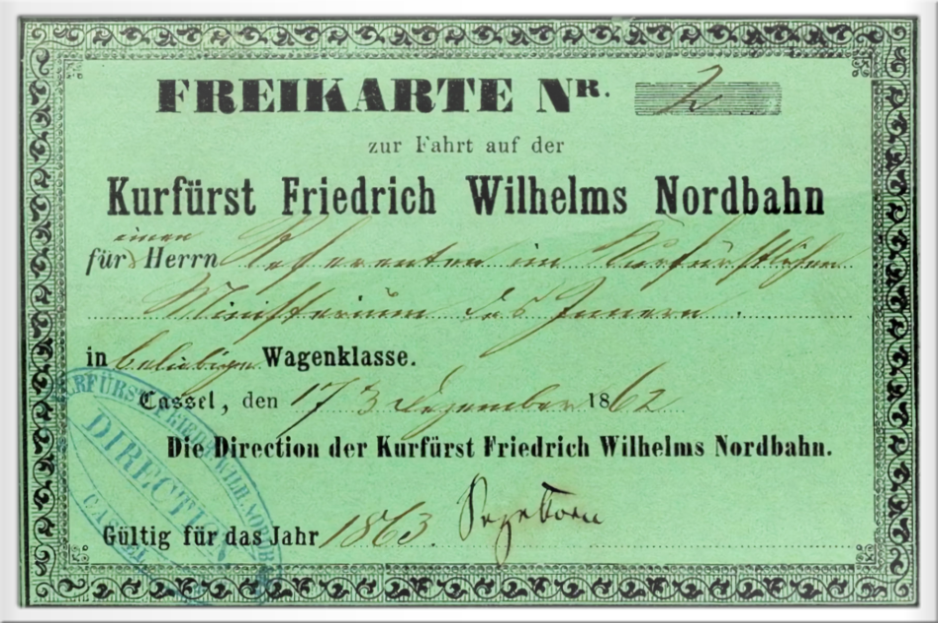 FREIKARTE NR. 2
zur Fahrt auf der
Kurfürst Friedrich Wilhelms Nordbahn
einen
für Herrn Referenten im Kurfürstlichen
Ministerium des Innern.
in beliebiger Wagenklasse.
Cassel, den 17 Dezember 1862
Die Direction der Kurfürst Friedrich Wilhelms Nordbahn.
Gültig für das Jahr 1863.
KURFÜRST FRIEDR. WILH. NORDB.
DIRECTION
CASSEL